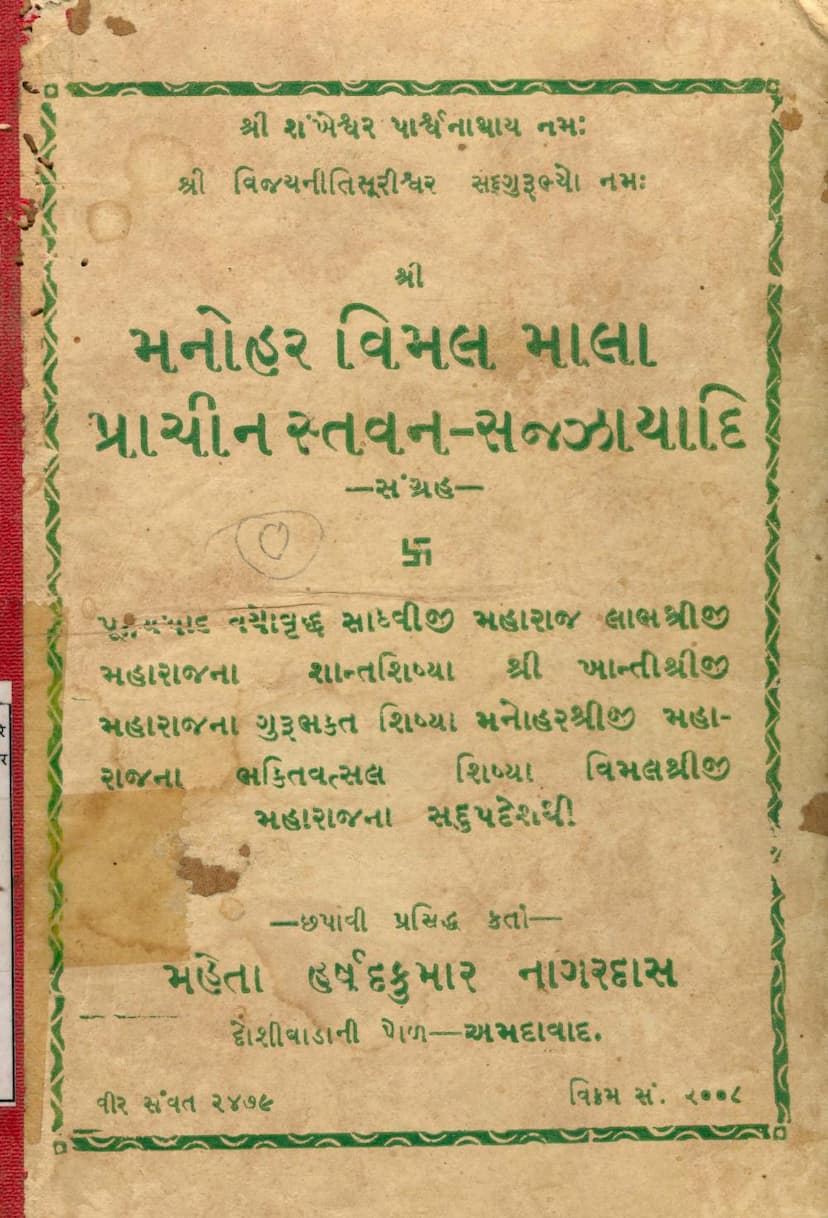 શ્રી શંખેશ્વર પાર્શ્વનાથાય નમઃ
શ્રી વિજયનીતિસૂરીશ્વર સદ્‌ગુરૂભ્યો નમઃ
શ્રી
મનોહર વિમલ માલા
પ્રાચીન સ્તવન-સજઝાયાદિ
—સંગ્રહ—
卐
વયોવૃદ્ધ સાધ્વીજી મહારાજ લાભશ્રીજી
મહારાજના શાન્તશિષ્યા શ્રી ખાન્તીશ્રીજી
મહારાજના ગુરૂભકત શિષ્યા મનોહરશ્રીજી મહા-
રાજના ભકિતવત્સલ શિષ્યા વિમલશ્રીજી
મહારાજના સદુપદેશથી
—છપાવી પ્રસિદ્ધ કર્તા—
મહેતા હર્ષદકુમાર નાગરદાસ
દોશીવાડાની પોળ—અમદાવાદ.
વીર સંવત ૨૪૭૯
વિક્રમ સં. ૨૦૦૮